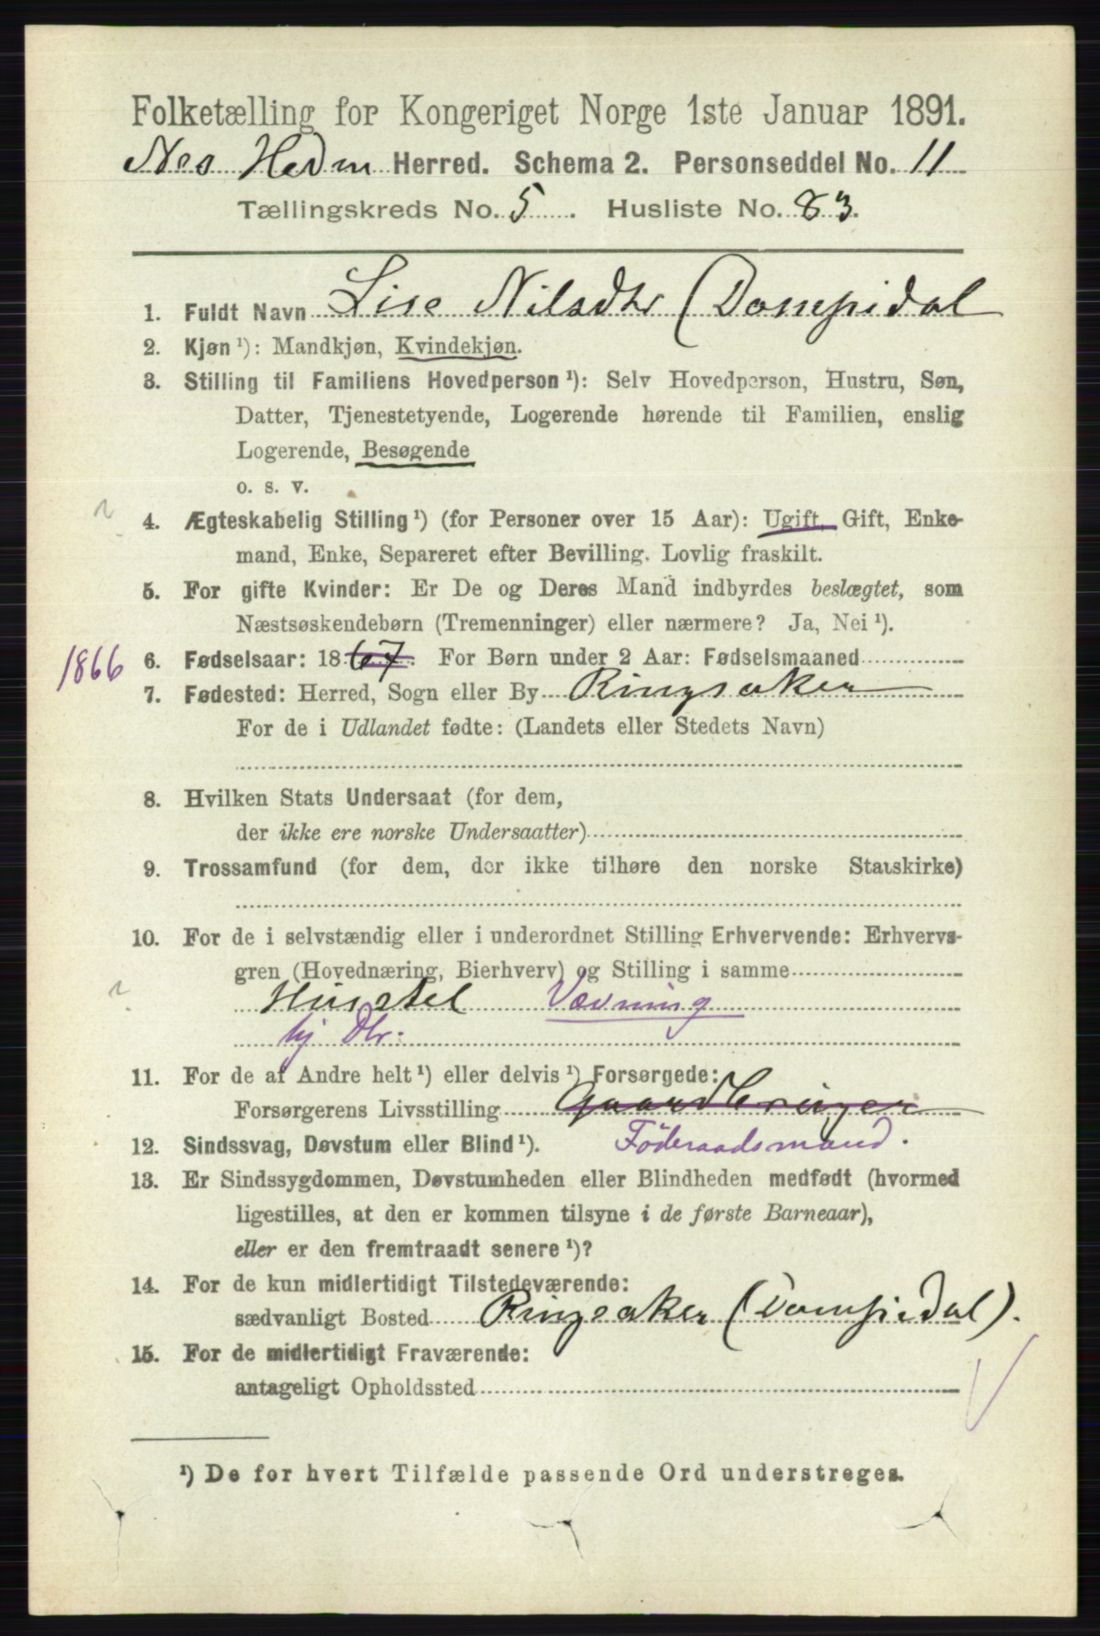 Folketælling for Kongeriget Norge 1ste Januar 1891.
Nes Hedm Herred. Schema 2. Personseddel No. 11
Tællingskreds No. 5. Husliste No. 83.
1. Fuldt Navn Lise Nilsdtr (Dompidal
2. Kjøn ¹): Mandkjøn, Kvindekjøn.
3. Stilling til Familiens Hovedperson ¹): Selv Hovedperson, Hustru, Søn,
Datter, Tjenestetyende, Logerende hørende til Familien, enslig
Logerende, Besøgende
o. s. v.
4. Ægteskabelig Stilling ¹) (for Personer over 15 Aar): Ugift, Gift, Enke-
mand, Enke, Separeret efter Bevilling. Lovlig fraskilt.
5. For gifte Kvinder: Er De og Deres Mand indbyrdes beslægtet, som
Næstsøskendebørn (Tremenninger) eller nærmere? Ja, Nei ¹).
1866 6. Fødselsaar: 1867. For Børn under 2 Aar: Fødselsmaaned
7. Fødested: Herred, Sogn eller By Ringsaker
For de i Udlandet fødte: (Landets eller Stedets Navn)
8. Hvilken Stats Undersaat (for dem,
der ikke ere norske Undersaatter)
9. Trossamfund (for dem, der ikke tilhøre den norske Statskirke)
10. For de i selvstændig eller i underordnet Stilling Erhvervende: Erhvervs-
gren (Hovednæring, Bierhverv) og Stilling i samme
Husstel Vævning
hj. Dtr.
11. For de af Andre helt ¹) eller delvis ¹) Forsørgede:
Forsørgerens Livsstilling Gaardbruger
12. Sindssvag, Døvstum eller Blind ¹). Föderaadsmand.
13. Er Sindssygdommen, Døvstumheden eller Blindheden medfødt (hvormed
ligestilles, at den er kommen tilsyne i de første Barneaar),
eller er den fremtraadt senere ¹)?
14. For de kun midlertidigt Tilstedeværende:
sædvanligt Bosted Ringsaker (Dompidal).
15. For de midlertidigt Fraværende:
antageligt Opholdssted
¹) De for hvert Tilfælde passende Ord understreges.